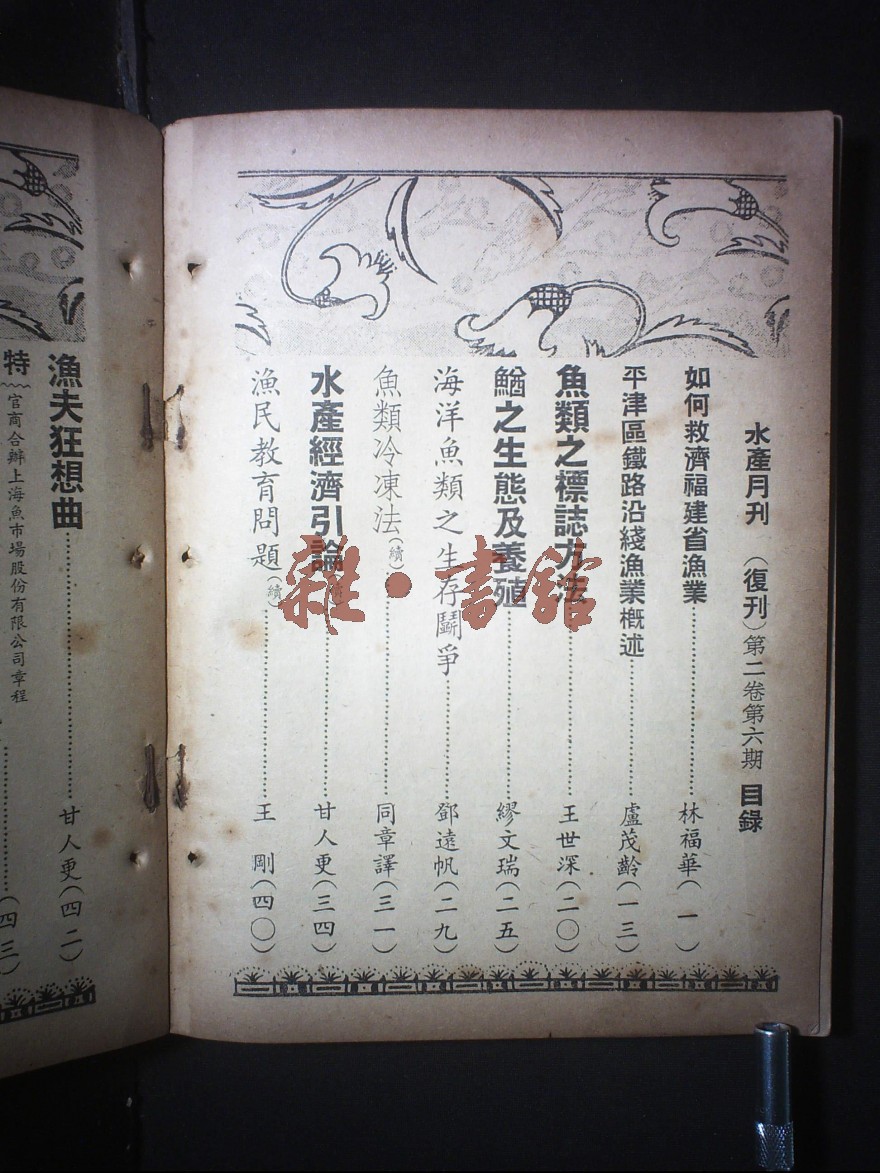 水產月刊 （復刊）第二卷第六期 目錄
如何救濟福建省漁業…………林福華（一）
平津區鐵路沿綫漁業概述…………盧茂齡（一三）
魚類之標誌方法…………王世深（二〇）
鰌之生態及養殖…………繆文瑞（二五）
海洋魚類之生存鬭爭…………鄧遠帆（二九）
魚類冷凍法（續）…………同章譯（三一）
水產經濟引論…………甘人更（三四）
漁民教育問題（續）…………王 剛（四〇）
漁夫狂想曲…………甘人更（四二）
特
官商合辦上海魚市場股份有限公司章程
…………（四三）
雜·書館